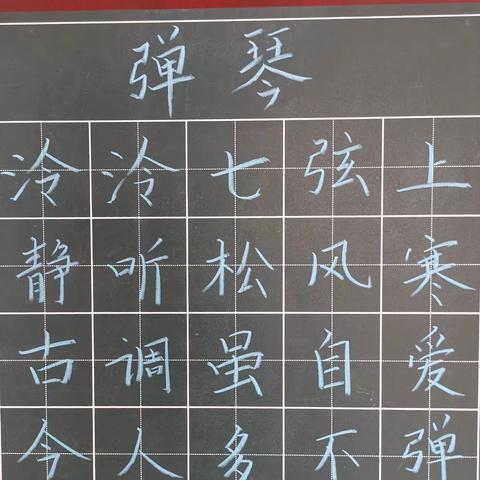 弹琴
泠泠七弦上
静听松风寒
古调虽自爱
今人多不弹